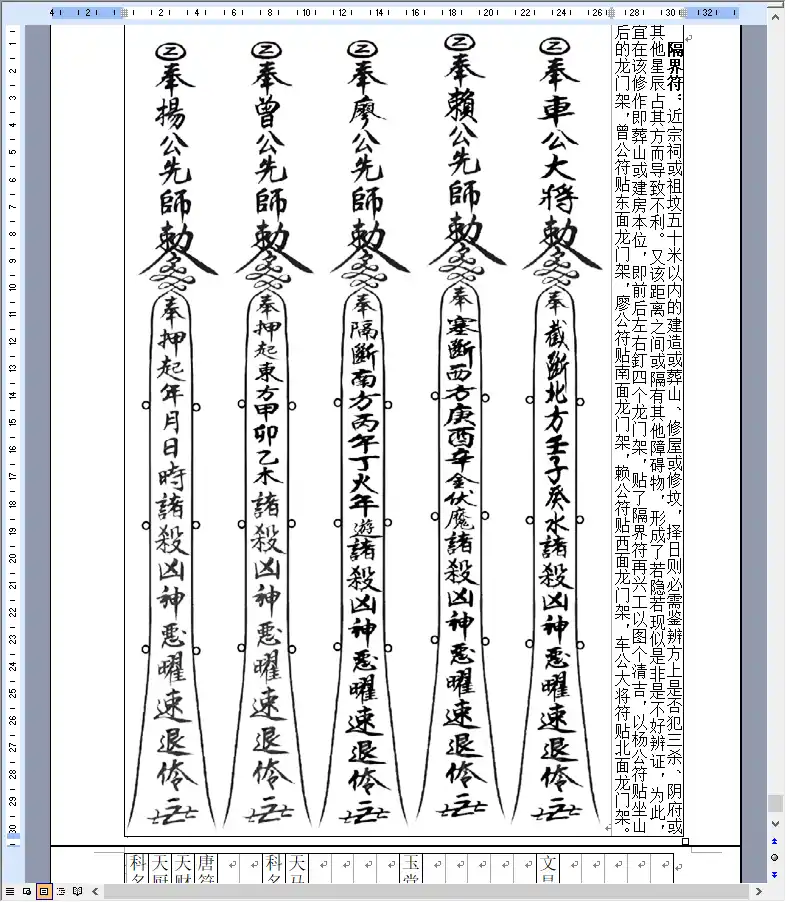 隔界符：近宗祠或祖坟五十米以内的建造或葬山、修屋或修坟，择日则必需鉴辨方上是否犯三杀、阴府或
其他星辰占其方而导致不利。又该距离之间或隔有其他障碍物，形成了若隐若现似是非是不好辨证，为此，
宜在该修作即葬山或建房本位，即前后左右釘四个龙门架，贴了隔界符再兴工以图个清吉，以杨公符贴坐山
后的龙门架，曾公符贴东面龙门架，廖公符贴南面龙门架，赖公符贴西面龙门架，车公大将符贴北面龙门架。
奉車公大將勅
奉截斷北方壬子癸水諸殺凶神惡曜速退
奉賴公先師勅
奉塞斷西方庚酉辛金伏魔諸殺凶神惡曜速退
奉廖公先師勅
奉隔斷南方丙午丁火年遊諸殺凶神惡曜速退
奉曾公先師勅
奉押起東方甲卯乙木諸殺凶神惡曜速退
奉揚公先師勅
奉押起年月日時諸殺凶神惡曜速退
文昌
玉堂
天马
科名
唐符
天财
天厨
科名
4 2 2 4 6 8 10 12 14 16 18 20 22 24 26 28 30 32
1 2 3 4 5 6 7 8 9 10 11 12 13 14 15 16 17 18 19 20 21 22 23 24 25 26 27 28 29 30